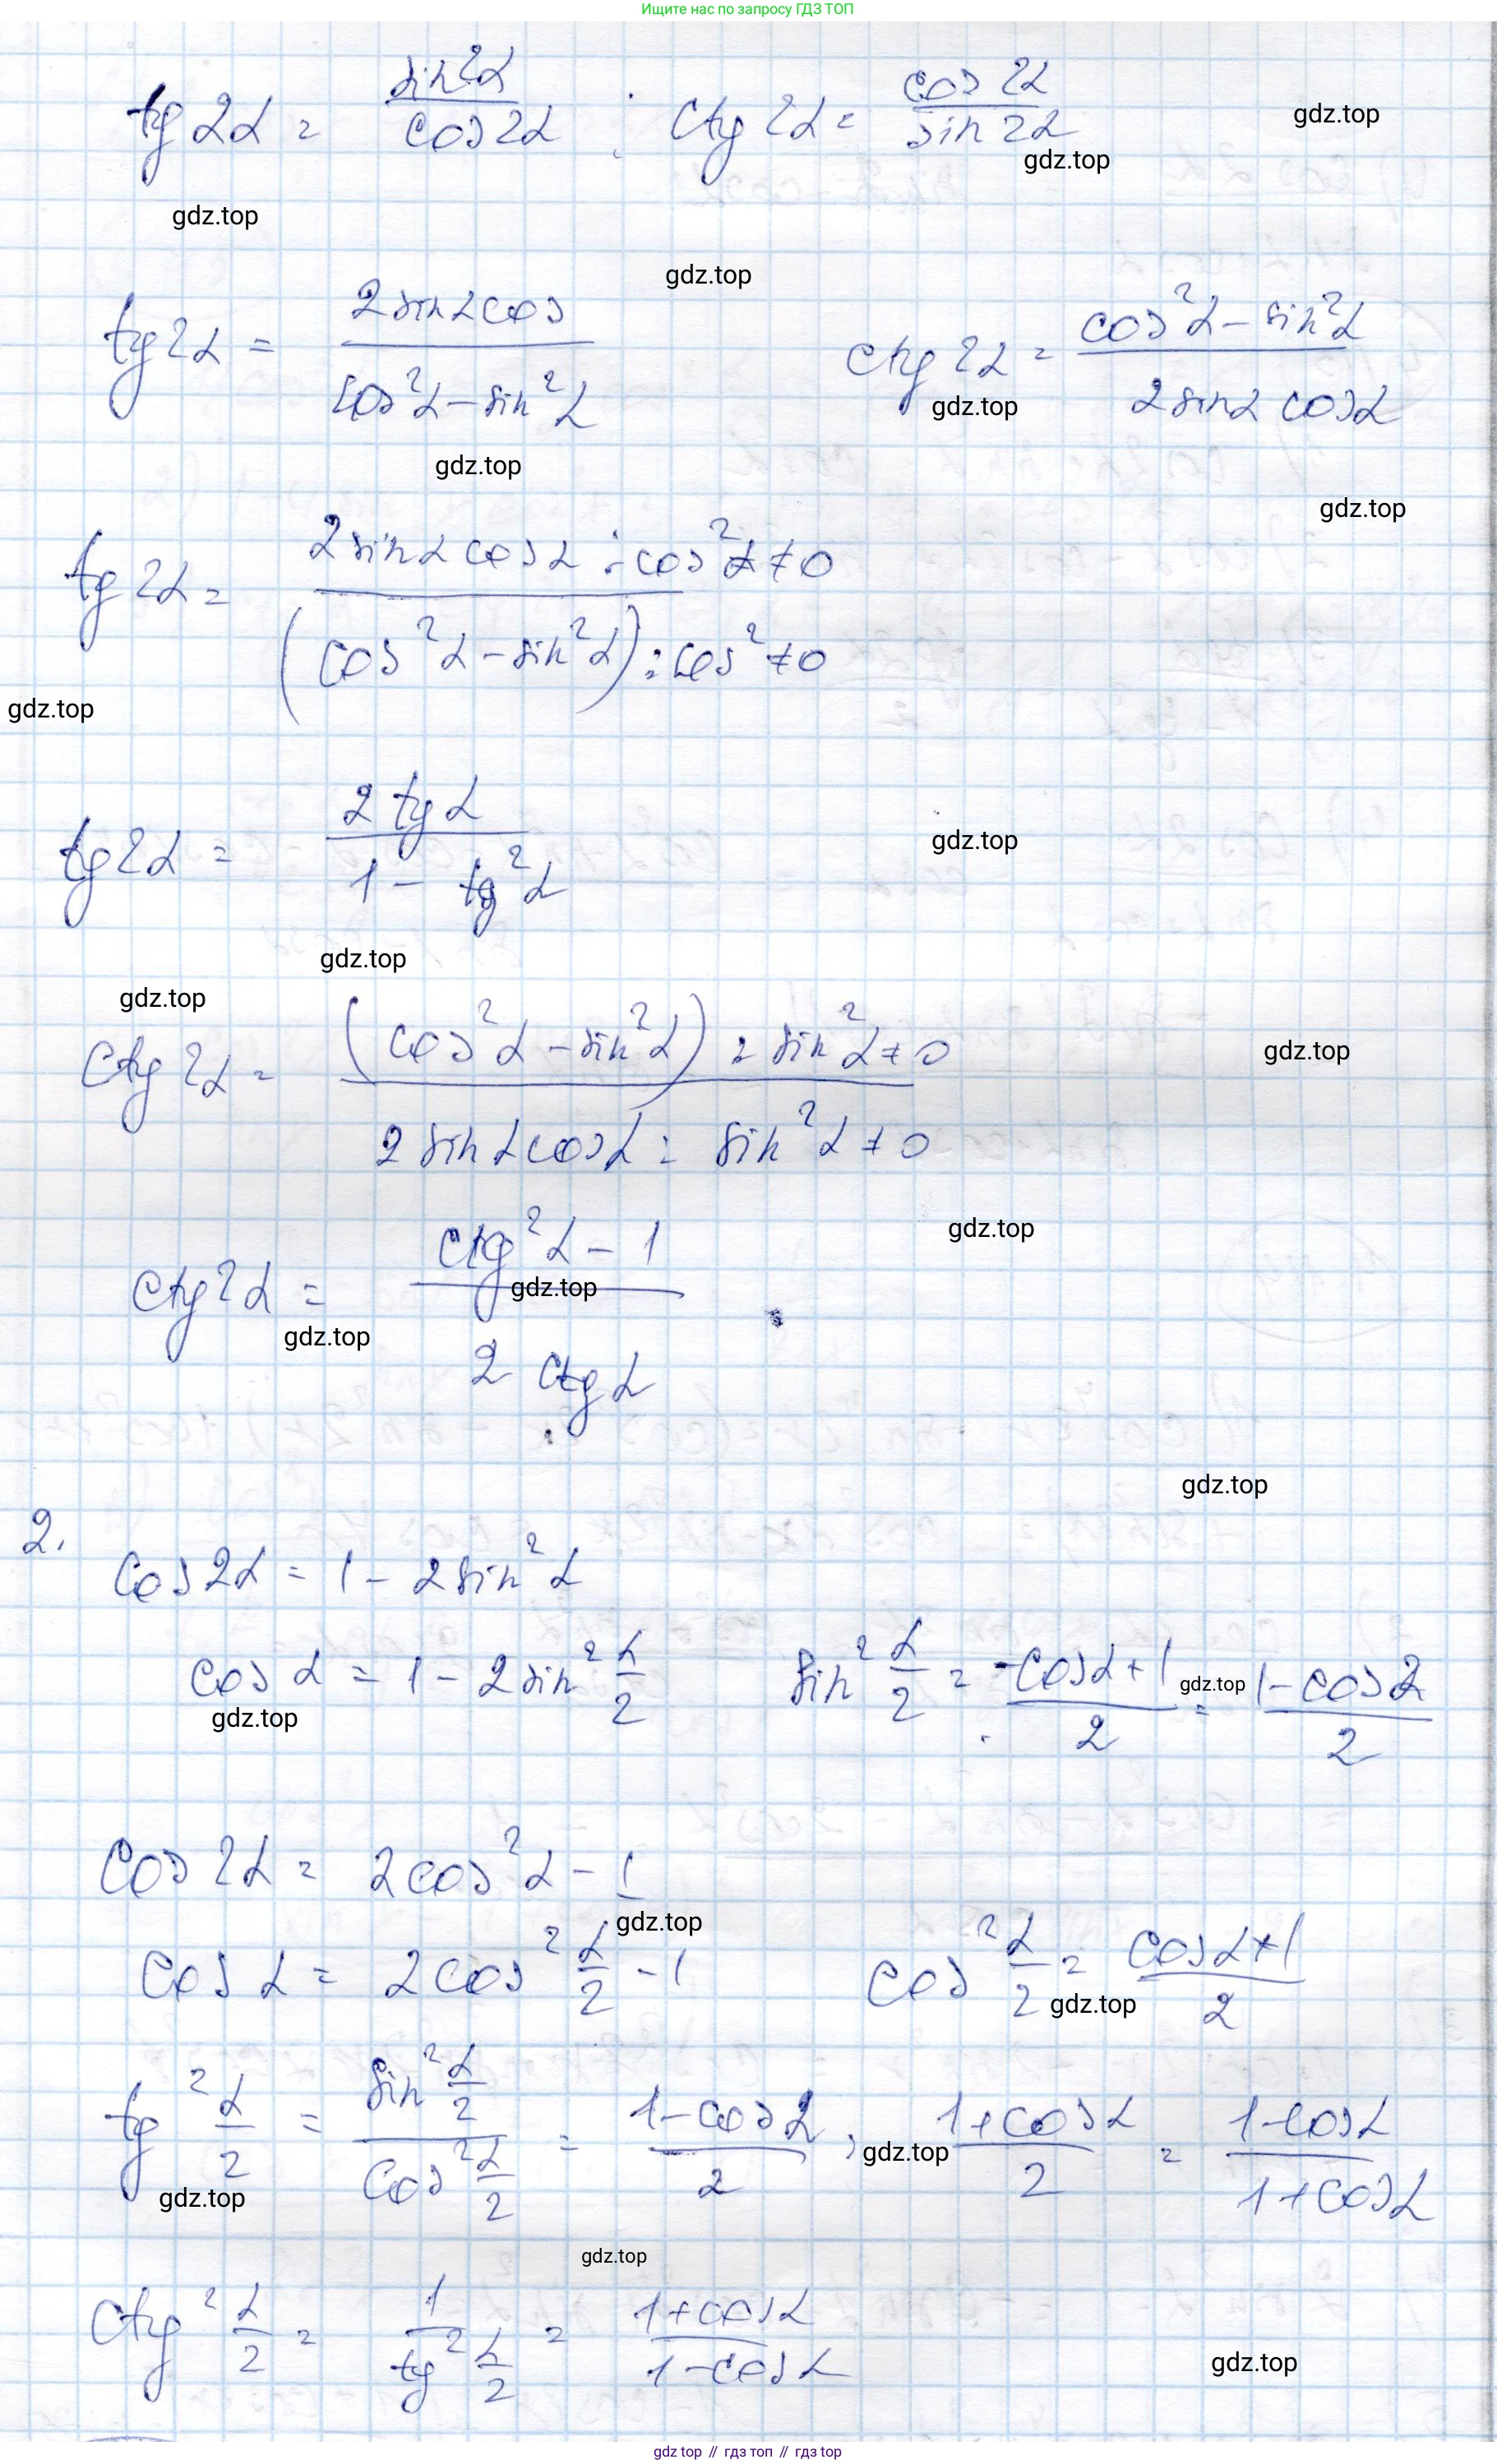 Ищите нас по запросу ГДЗ ТОП
tg 2α = sin 2α / cos 2α ; ctg 2α = cos 2α / sin 2α
gdz.top
gdz.top
gdz.top
gdz.top
tg 2α = 2 sin α cos / cos²α – sin²α ctg 2α = cos²α – sin²α / 2 sin α cos α
gdz.top
gdz.top
gdz.top
tg 2α = 2 sin α cos α : cos²α ≠ 0 / (cos²α – sin²α) : cos² ≠ 0
gdz.top
tg 2α = 2 tg α / 1 – tg²α
gdz.top
gdz.top
gdz.top
ctg 2α = (cos²α – sin²α) : sin²α ≠ 0 / 2 sin α cos α : sin²α ≠ 0
gdz.top
gdz.top
ctg 2α = ctg²α – 1 / 2 ctg α
gdz.top
gdz.top
gdz.top
2.
cos 2α = 1 – 2 sin²α
cos α = 1 – 2 sin² α/2 sin² α/2 = -cos α + 1 / 2 = 1 – cos α / 2
gdz.top
gdz.top
cos 2α = 2 cos²α – 1
gdz.top
cos α = 2 cos² α/2 – 1 cos² α/2 = cos α + 1 / 2
gdz.top
tg² α/2 = sin² α/2 / cos² α/2 = 1 – cos α / 2 : 1 + cos α / 2 = 1 – cos α / 1 + cos α
gdz.top
gdz.top
gdz.top
ctg² α/2 = 1 / tg² α/2 = 1 + cos α / 1 – cos α
gdz.top
gdz top // гдз топ // gdz top